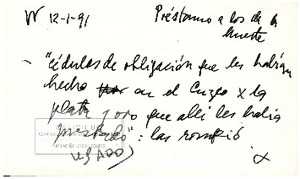 W 12-1-91 Préstamo a los de la
muerte
- "cédulas de obligación que les habían
hecho en el Cuzco x la
plata y oro que alli les había
prestado": las rompió